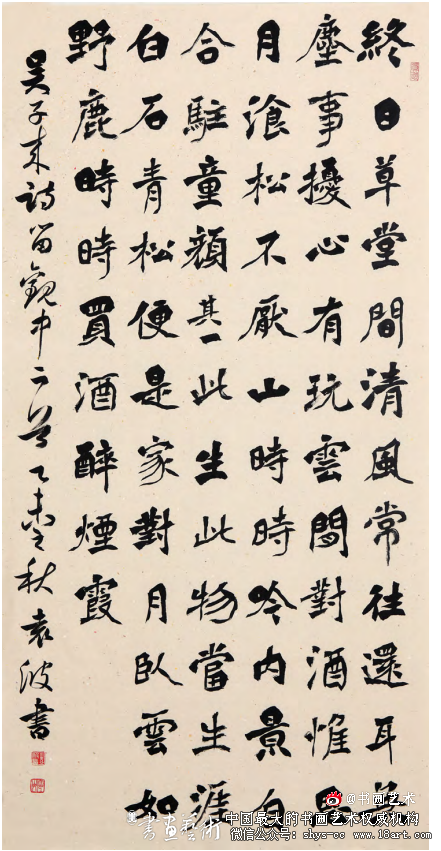 終日草堂間清風常往還耳無
塵事擾心有玩雲閒對酒惟思
月飡松不厭山時時吟內景自
合駐童顏其一此生此物當生涯
白石青松便是家對月臥雲如
野鹿時時買酒醉煙霞
吳子來詩留觀中二首乙未之秋袁波書
@书画艺术
書畫藝術
中国最大的书画艺术权威机构
微信公众号：shys-cc www.18art.com